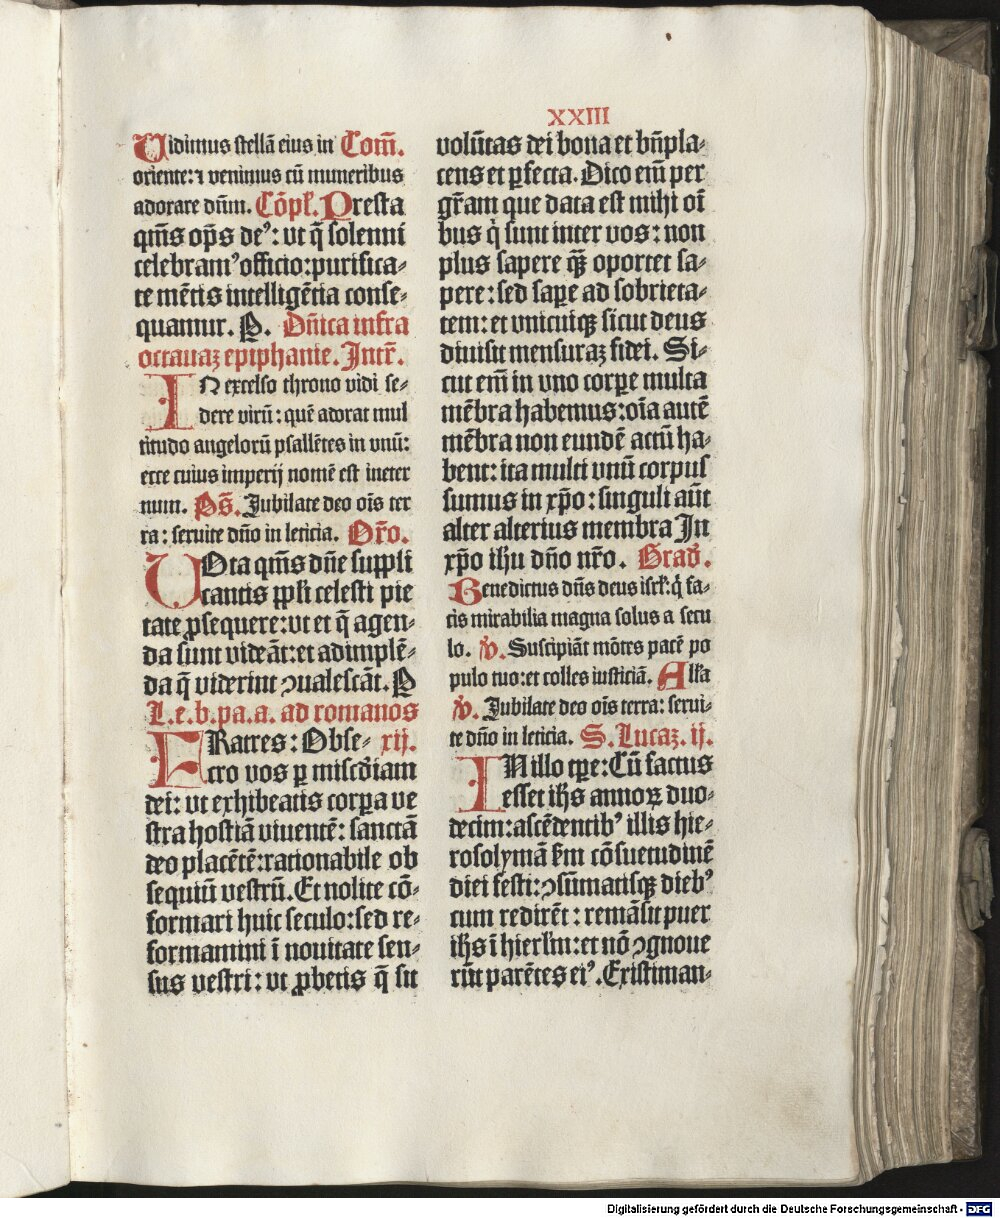 XXIII
Uidimus stellā eius in Com̄.
oriente: ⁊ venimus cū muneribus
adorare dn̄m. Cōpl̄. Presta
qm̄s op̄s deꝰ: vt q̄ solenni
celebramꝰ officio: purifica-
te mētis intelligētia conse-
quamur. P. Dn̄ica infra
octauaꝫ epiphanie. Intr̄.
IN excelso throno vidi se-
dere virū: quē adorat mul
titudo angelorū psallētes in vnū:
ecce cuius imperij nomē est in eter
num. Ps̄. Jubilate deo oīs ter
ra: seruite dn̄o in leticia. Or̄o.
UOta qm̄s dn̄e suppli
cantis ppl̄i celesti pie
tate ꝓsequere: vt et q̄ agen-
da sunt videāt: et ad implē-
da q̄ viderint ꝯualescāt. P
L. e. b. pa. a. ad romanos
FRatres: Obse- xij.
cro vos p̲ misc̄diam
dei: vt exhibeatis corp̲a ve
stra hostiā viuentē: sanctā
deo placētē: rationabile ob
sequiū vestrū. Et nolite cō-
formari huic seculo: sed re-
formamini ī nouitate sen-
sus vestri: vt ꝓbetis q̄ sit
volūtas dei bona et bn̄pla-
cens et p̲fecta. Dico em̄ per
gr̄am que data est mihi oī
bus q̇ sunt inter vos: non
plus sapere q̄ꝫ oportet sa-
pere: sed sap̲e ad sobrieta-
tem: et vnicuiqꝫ sicut deus
diuisit mensuraꝫ fidei. Si-
cut em̄ in vno corp̲e multa
mēbra habemus: oīa autē
mēbra non eundē actū ha-
bent: ita multi vnū corpus
sumus in xp̄o: singuli aūt
alter alterius membra In
xp̄o ihu dn̄o nr̄o. Grad̄.
Benedictus dn̄s deus isrl̄: q̇ fa-
cis mirabilia magna solus a secu
lo. v̄. Suscipiāt mōtes pacē po
pulo tuo: et colles iusticiā. All̄a
v̄. Jubilate deo oīs terra: serui-
te dn̄o in leticia. S. Lucaꝫ. ij.
IN illo tp̲e: Cū factus
esset ih̄s annoꝝ duo-
decim: ascēdentibꝰ illis hie-
rosolymā fm̄ cōsuetudinē
diei festi: ꝯsūmatisqꝫ diebꝰ
cum redirēt: remāsit puer
ih̄s ī hierl̄m: et nō ꝯgnoue
rūt parētes eiꝰ. Existiman-
Digitalisierung gefördert durch die Deutsche Forschungsgemeinschaft - DFG